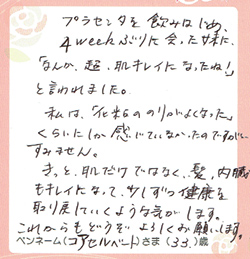 プラセンタを飲みはじめ、
4weekぶりに会った妹に、
「なんか、超、肌キレイになったね!」
と言われました。
私は、「化粧ののりがよくなった」
くらいにしか感じていなかったのですが…
すみません。
きっと、肌だけではなく、髪、内臓
もキレイになって、少しずつ健康を
取り戻していくような気がします。
これからもどうぞよろしくお願いします。
ペンネーム(コアセルベート)さま(33)歳